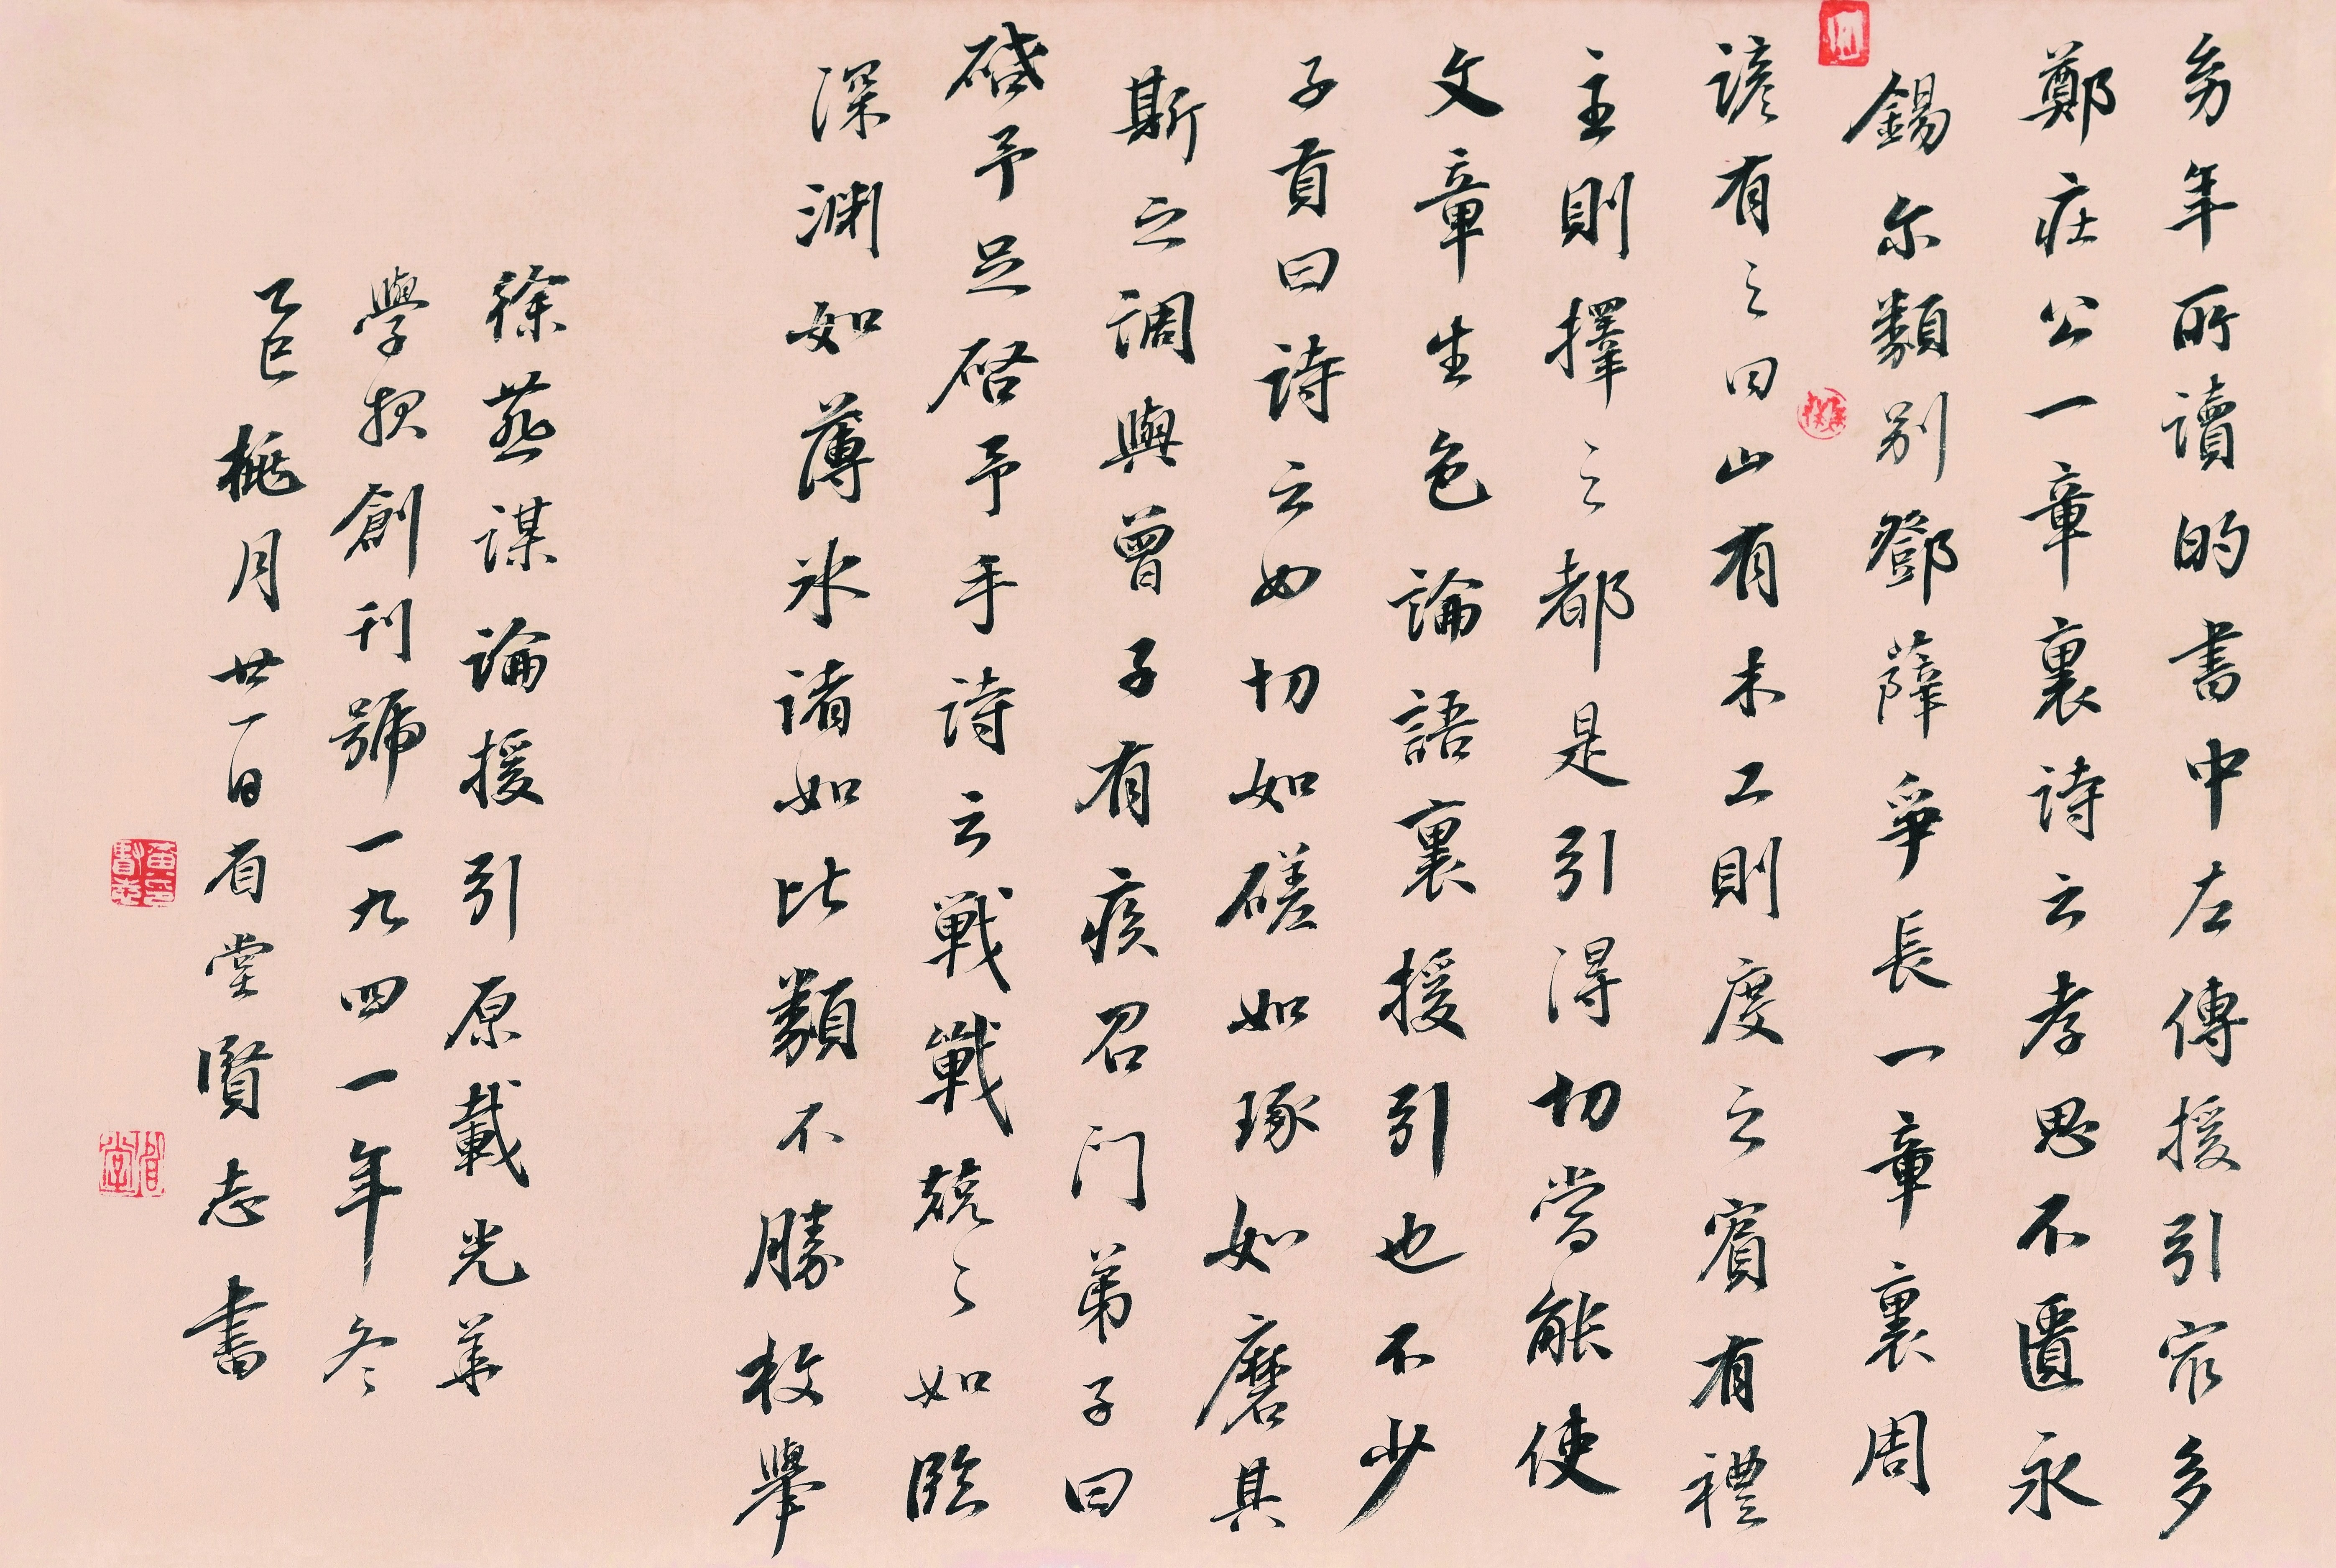 幼年所讀的書中左傳援引最多
鄭莊公一章裏詩云孝思不匱永
錫尔類別鄧薛爭長一章裏周
諺有之曰山有木工則度之賓有禮
主則擇之都是引得切當能使
文章生色論語裏援引也不少
子貢曰詩云如切如磋如琢如磨其
斯之調與曾子有疾召門弟子曰
啟予足啓予手詩云戰戰兢々如臨
深淵如薄氷諸如此類不勝枚舉
徐燕謀論援引原載光華
學報創刊號一九四一年冬
乙巳桃月廿一日堂賢志書